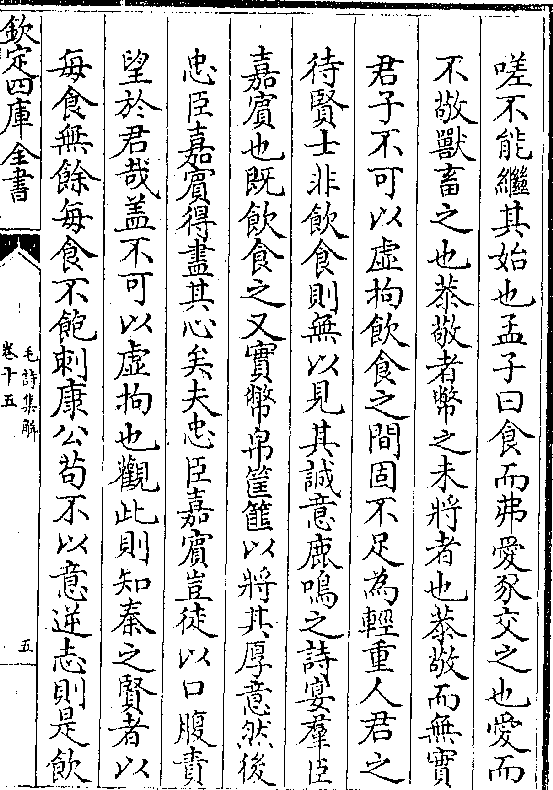 嗟不能繼其始也孟子曰食而弗愛豕交之也愛而
不敬獸畜之也恭敬者幣之未將者也恭敬而無實
君子不可以虛拘飲食之間固不足為輕重人君之
待賢士非飲食則無以見其誠意鹿鳴之詩宴羣臣
嘉賓也既飲食之又實幣帛筐篚以將其厚意然後
忠臣嘉賓得盡其心矣夫忠臣嘉賓豈徒以口腹責
望於君哉盖不可以虛拘也觀此則知秦之賢者以
每食無餘每食不飽刺康公苟不以意逆志則是飲
欽定四庫全書
毛詩集解
卷十五
五